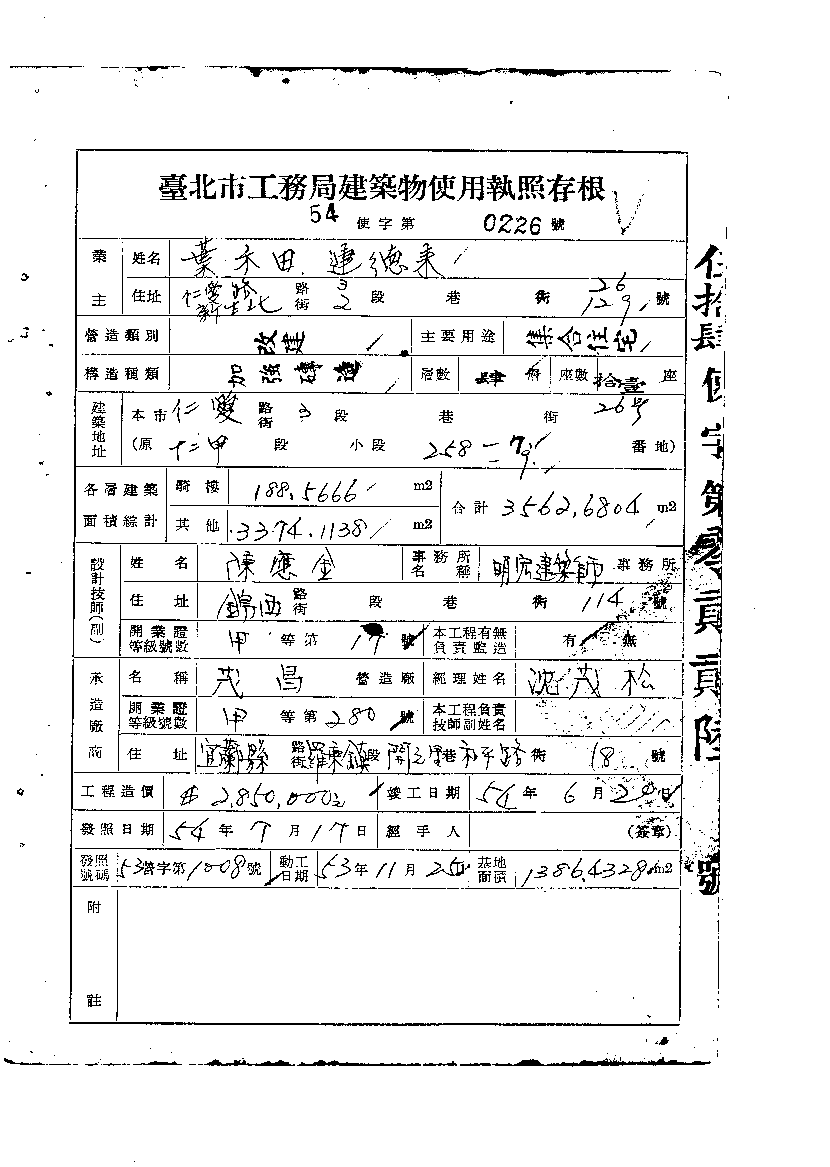 臺北市工務局建築物使用執照存根
54 使字第 0226 號
業主 姓名 葉禾田 連德來
住址 仁愛 路街 3 段 巷 街 26 號
新生北 2 129
營造類別 改建 主要用途 集合住宅
構造種類 加強磚造 層數 肆 座數 拾壹 座
建築地址 本市 仁愛 路街 3 段 巷 街 26号
(原 仁甲 段 小段 258 番地)
各層建築面積綜計 騎樓 188.5666 m2 合計 3562.6804 m2
其他 3374.1138 m2
設計技師(副) 姓名 陳應金 事務所名稱 明宏建築師 事務所
住址 錦西 路街 段 巷 街 114 號
開業證等級號數 甲 等第 17 號 本工程有無負責監造 有 無
承造廠商 名稱 茂昌 營造廠 經理姓名 沈茂松
開業證等級號數 甲 等第 280 號 本工程負責技師副姓名
住址 宜蘭縣 路街 羅東鎮 段 開元里 巷 和平路 街 18 號
工程造價 2,850,000 竣工日期 54 年 6 月 20 日
發照日期 54 年 7 月 17 日 經手人 (簽章)
發照號碼 53 營字第 1008 號 動工日期 53 年 11 月 25 基地面積 1386.4328 m2
附註
伍拾肆使字第零貳貳陸號